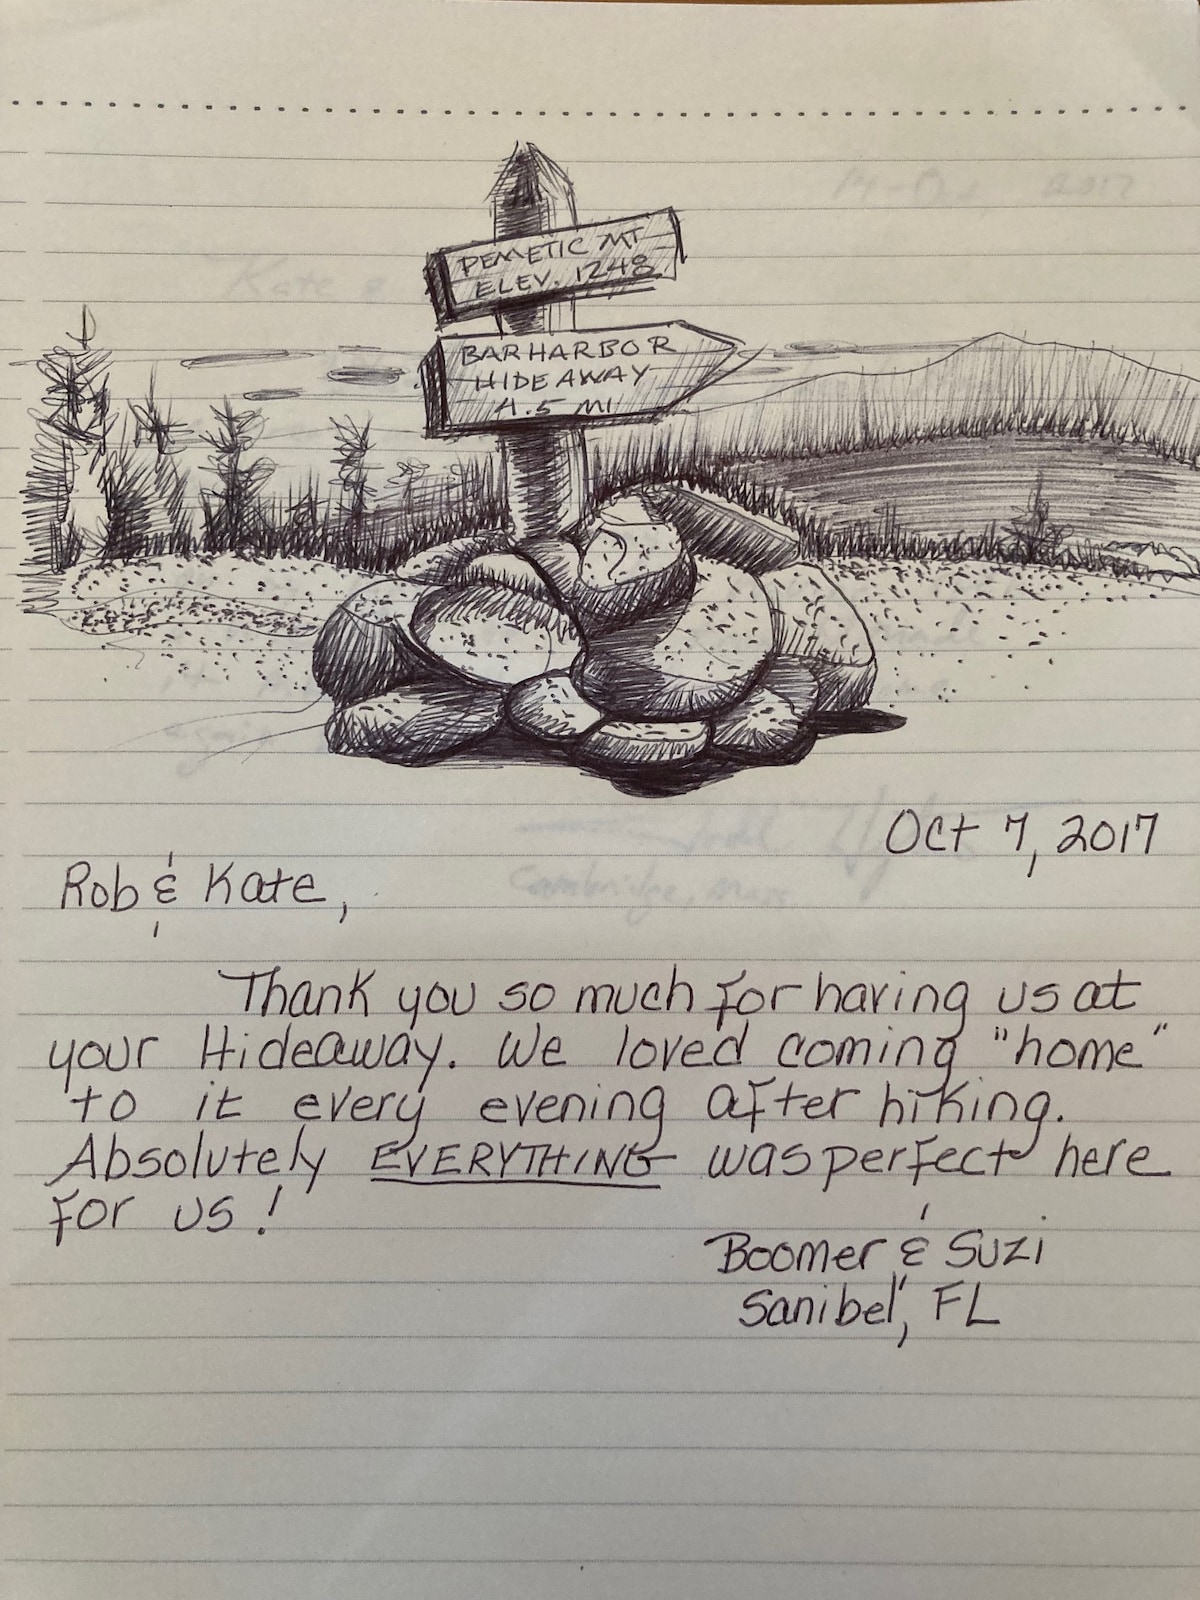 PEMETIC MT
ELEV. 1248
BAR HARBOR
HIDEAWAY
4.5 MI
Oct 7, 2017
Rob & Kate,
Thank you so much for having us at
your Hideaway. We loved coming "home"
to it every evening after hiking.
Absolutely EVERYTHING was perfect here
for us!
Boomer & Suzi
Sanibel, FL